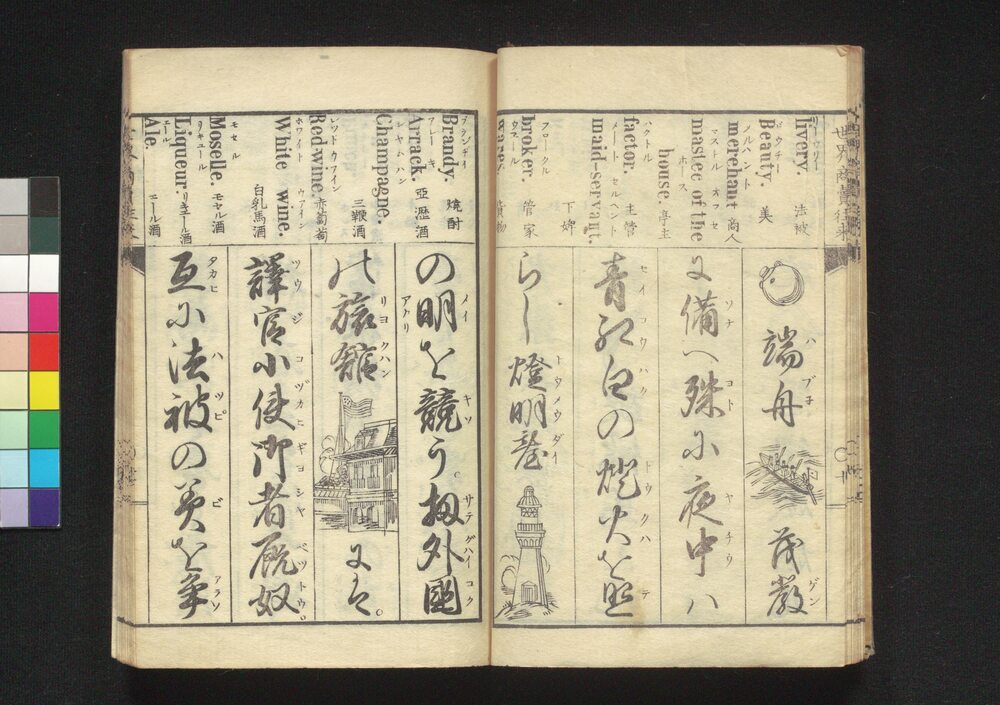 世界商賣往来
リウリー
livery. 法被
ビウチー
Beauty. 美
メルハント
merehant 商人
マスートル オフ ゼ
mastec of the
ホース
house. 亭主
ハクトル
factor. 主管
メート セルヘント
maid-servant. 下婢
ブロークル
broker. 管家
端舟 ハブ子
茂教 ゲン
に備へ殊に夜中ハ ソナ コト ヤチウ
青紅白の燈火を照 セイコウハク トウクハ テ
らし燈明臺 トウメウダイ
ブランデイ
Brandy. 焼酎
アレーキ
Arrack. 亞瀝酒
シヤムハン
Champagne. 三鞭酒
レツトウワイン
Red-wine. 赤葡萄
ホワイト ウアイン
White wine. 白乳馬酒
モセル
Moselle. モセル酒
リキュール
Liqueur. リエール酒
エール
Ale. エール酒
の明を競う。扨外國 メイ アカリ キソ サテ グハイコク
の旅舘 リヨクハン
にハ。
譯官小使御者厩奴。 ツウジ コヅカヒ ギヨシヤ ベツトウ
互に法被の美を争 タカヒ ハツピ ビ アラソ